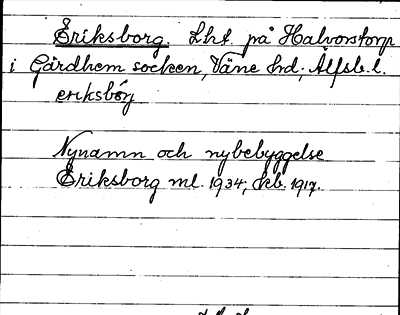 Eriksborg. Lht. på Halvorstorp
i Gärdhem socken, Väne hd; Älfsb. l.
eriksbǿrj
Nynamn och nybebyggelse
Eriksborg ml. 1934; kb. 1917.